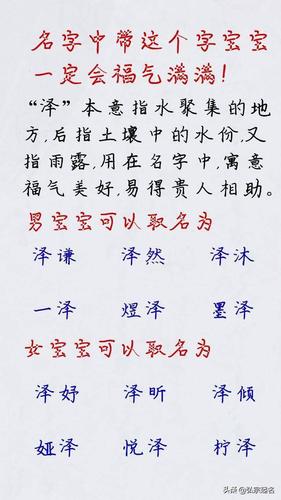 名字中带这个字宝宝
一定会福气满满!
“泽”本意指水聚集的地
方,后指土壤中的水份,又
指雨露,用在名字中,寓意
福气美好,易得贵人相助。
男宝宝可以取名为
泽谦 泽然 泽沐
一泽 煜泽 墨泽
女宝宝可以取名为
泽妤 泽昕 泽倾
娅泽 悦泽 柠泽
头条 @弘宗起名